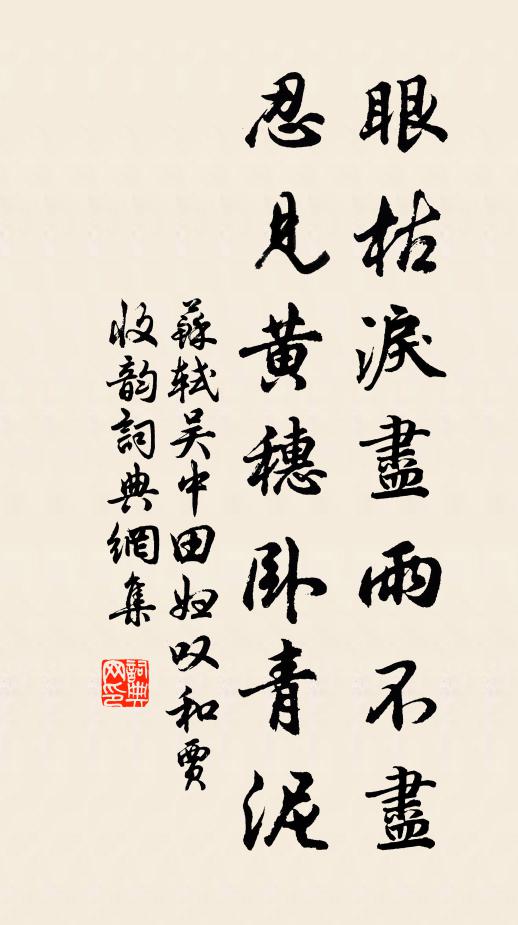 眼枯淚盡雨不盡
忍見黃穗臥青泥
蘇軾吴中田妇叹和賈
收韵詞典網集
詞典网印